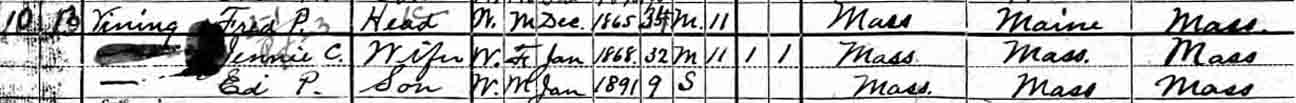 10 13 Vining Fred P. Head W. M Dec. 1865 34 M. 11 Mass Maine Mass.
— Jennie C. Wife W. F Jan 1868 32 M 11 1 1 Mass. Mass. Mass
— Ed P. Son W. M Jan 1891 9 S Mass. Mass Mass